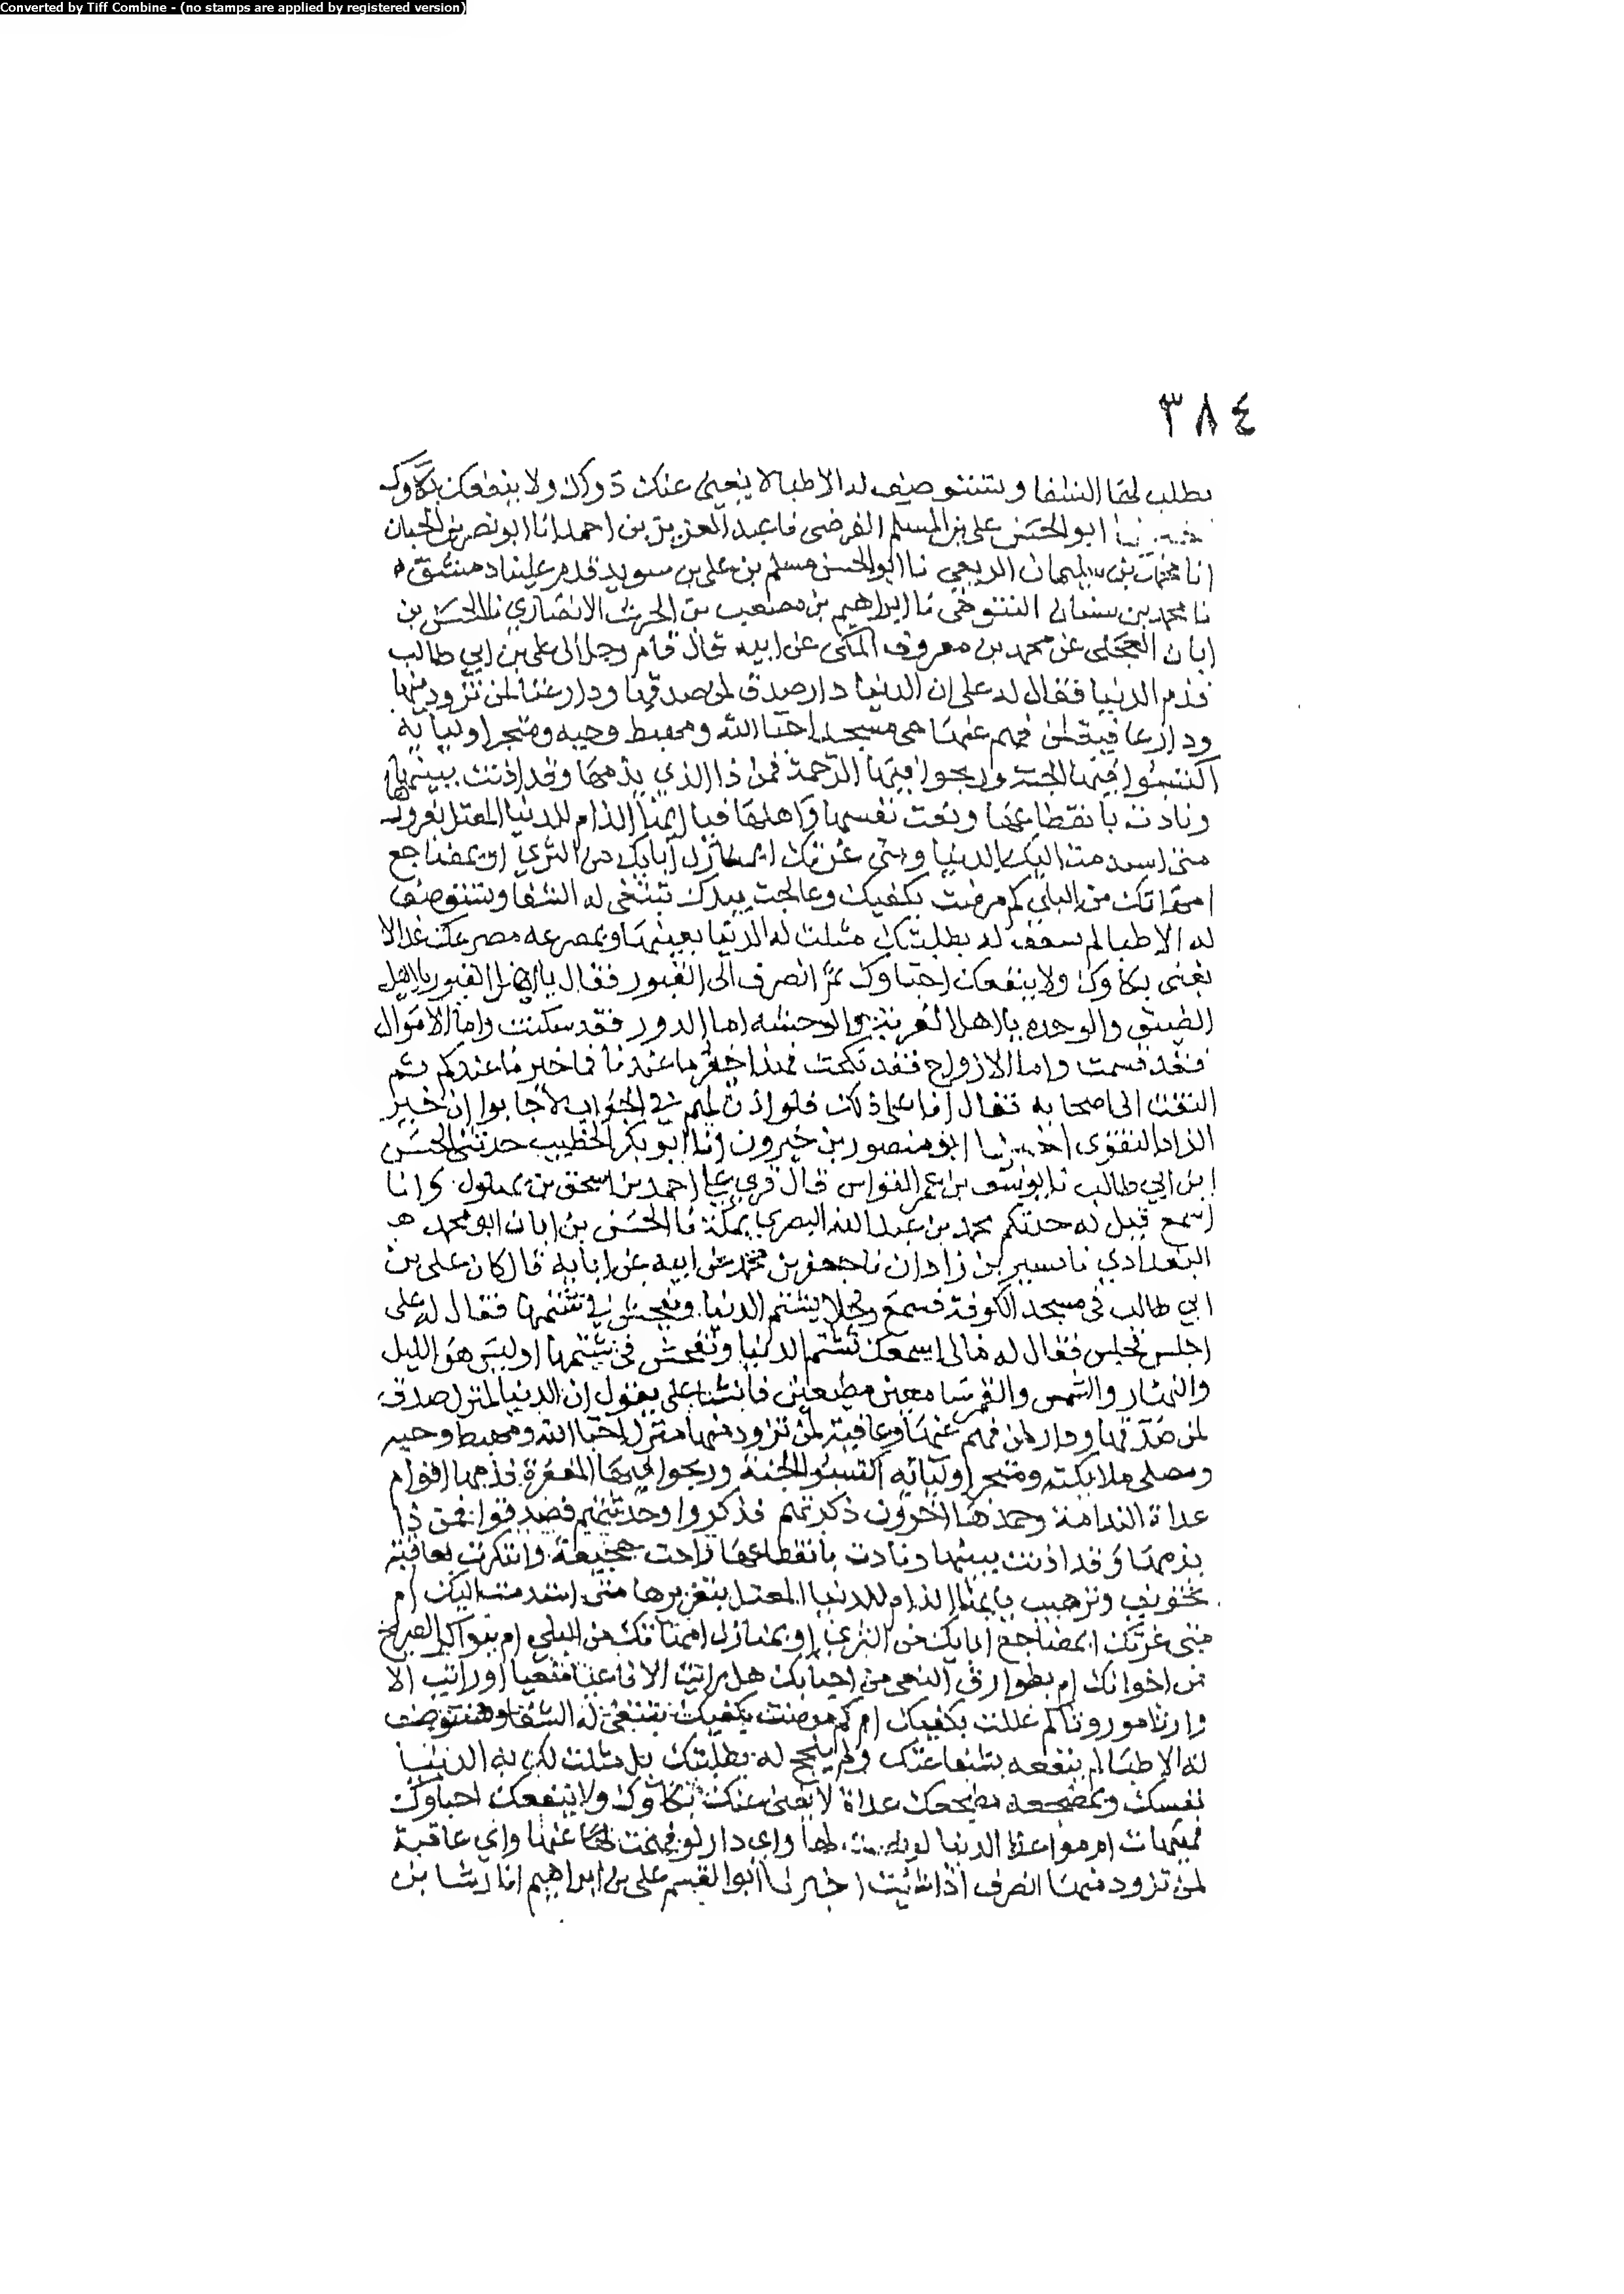 Converted by Tiff Combine - (no stamps are applied by registered version)
٣٨٤
يطلب لها الشفا ويستوصف له الاطبا لا يغنى عنك دواك ولا ينفعك بكاوك
ابو الحسن على بن المسلم الفرضى نا عبد العزيز بن احمد انا ابو نصر بن الجبان
انا بن سليمان الربعي نا ابو الحسن مسلم بن على بن سويد قدم علينا دمشق
نا محمد بن سنان التنوخى نا ابراهيم بن مصعب بن الحرث الانصاري نا الحسن بن
ابان العجلى عن محمد بن معروف المكى عن ابيه قال قام رجل الى على بن ابي طالب
فذم الدنيا فقال له على ان الدنيا دار صدق لمن صدقها ودار غنا لمن تزود منها
ودار عافية لمن فهم عنها هى مسجد احبا الله ومهبط وحيه ومتجر اوليايه
اكتسبوا فيها الجنة وربحوا فيها الرحمة فمن ذا الذي يذمها وقد اذنت ببينها
ونادت بانقطاعها ونعت نفسها واهلها فيا ايها الذام للدنيا المعتل بغرورها
متى استدمت اليك الدنيا ومتى غرتك ابمنازل آبايك من الثري او بمضاجع
امهاتك من البلي كم مرضت بكفيك وعالجت بيدك تبتغى له الشفا وتستوصف
له الاطبا لم تسعف له بطلبتك مثلت له الدنيا بعينها وبمصرعه مصرعك غدا لا
يغنى بكاوك ولا ينفعك احباوك ثم انصرف الى القبور فقال يا اهل القبور يا اهل
الضيق والوحده يا اهل الغربة والوحشه اما الدور فقد سكنت واما الاموال
فقد قسمت واما الازواج فقد نكحت فهذا خبر ما عندنا فما خبر ما عندكم ثم
التفت الى اصحابه فقال اما على ذلك فلو اذن لهم في الجواب لاجابوا ان خير
الزاد التقوى اخبرنا ابو منصور بن خيرون انا ابو بكر الخطيب حدثنى الحسن
ابن ابي طالب نا يوسف بن عمر القواس قال قري على احمد بن اسحق بن بهلول وانا
اسمع قيل له حدثكم محمد بن عبد الله البصري بمكة نا الحسن بن ابان ابو محمد
البغدادي نا بسير بن زاذان نا جعفر بن محمد عن ابيه عن ابايه قال كان على بن
ابي طالب فى مسجد الكوفة فسمع رجلا يشتم الدنيا ويفحش في شتمها فقال له على
اجلس فجلس فقال له مالى اسمعك تشتم الدنيا وتفحش فى شتمها اوليس هو الليل
والنهار والشمس والقمر سامعين مطيعين فانشا على يقول ان الدنيا لمنزل صدق
لمن صدقها ودار لمن فهم عنها وعافية لمن تزود منها منزل احبا الله ومهبط وحيه
ومصلى ملايكته ومتجر اوليائه اكتسبوا الجنة وربحوا فيها المغفرة فذمها اقوام
غداة الندامة وحمدها اخرون ذكرتهم فذكروا وحدثتهم فصدقوا فمن ذا
يذمها وقد اذنت ببينها ونادت بانقطاعها راحت بفجيعة وابتكرت بعافية
بتخويف وترهيب يا ايها الذام للدنيا المعتل بتغريرها متى استدمت اليك ام
متى غرتك ابمضاجع ابايك من الثري او بمنازل امهاتك من البلي ام ببواكر الصراخ
من اخوانك ام بطوارق النعى من احبابك هل رايت الا ناعيا منعيا او رايت الا
وارثا موروثا كم عللت بكفيك ام كم مرضت بكفيك تبتغى له الشفا وتستوصف
له الاطبا لم ينفعه بشفاعتك ولم ينجح له بطلبتك بل مثلت لك به الدنيا
نفسك وبمضجعه مضجعك غداة لا يغنى عنك بكاوك ولا ينفعك احباوك
فهيهات ام مواعظ الدنيا لو لها واى دار لو فهمت عنها واي عاقبة
لمن تزود منها انصرف اذا شيت اخبرنا ابو القسم على بن ابراهيم انا رشا بن